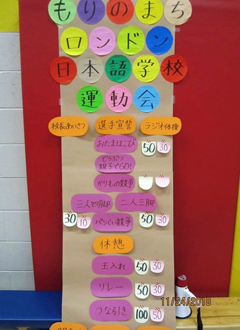 もりのまち
ロンドン
日本語学校
運動会
校長あいさつ 選手宣誓 ラジオ体操
おたまはこび 50 30
かりもの競争
三人で何脚 二人三脚
30 10 パン食い競争 50 30
休憩
玉入れ 50 30
リレー 50 30
つなひき 100 50
11/24/2018